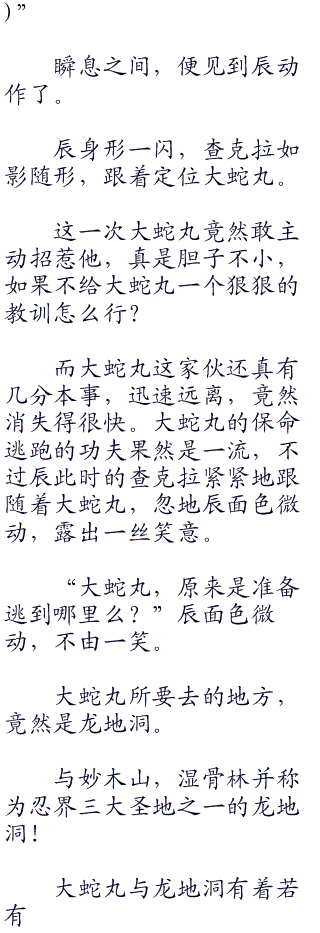 )”
瞬息之间，便见到辰动
作了。
辰身形一闪，查克拉如
影随形，跟着定位大蛇丸。
这一次大蛇丸竟然敢主
动招惹他，真是胆子不小，
如果不给大蛇丸一个狠狠的
教训怎么行？
而大蛇丸这家伙还真有
几分本事，迅速远离，竟然
消失得很快。大蛇丸的保命
逃跑的功夫果然是一流，不
过辰此时的查克拉紧紧地跟
随着大蛇丸，忽地辰面色微
动，露出一丝笑意。
“大蛇丸，原来是准备
逃到哪里么？”辰面色微
动，不由一笑。
大蛇丸所要去的地方，
竟然是龙地洞。
与妙木山，湿骨林并称
为忍界三大圣地之一的龙地
洞！
大蛇丸与龙地洞有着若
有